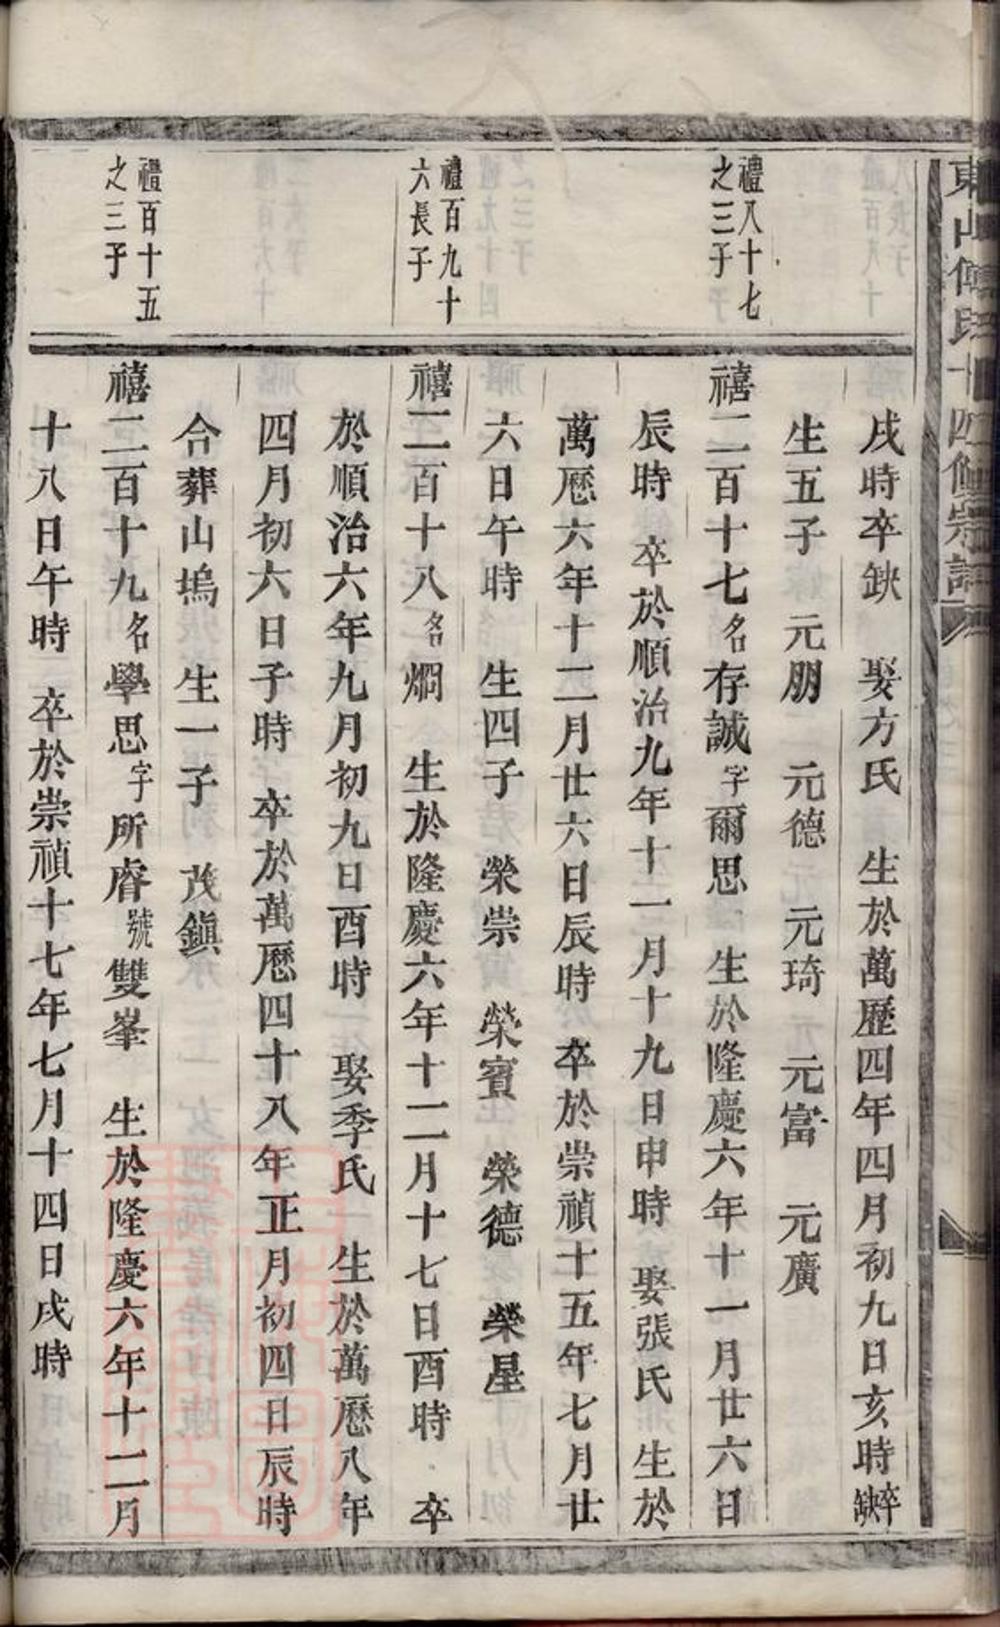 東山傅氏十四修宗譜
戌時卒缺 娶方氏 生於萬歷四年四月初九日亥時卒缺
生五子 元朋 元德 元琦 元富 元廣
禮八十七
之三子
禧二百十七名存誠字爾思 生於隆慶六年十一月廿六日
辰時 卒於順治九年十一月十九日申時 娶張氏 生於
萬曆六年十二月廿六日辰時 卒於崇禎十五年七月廿
六日午時 生四子 榮崇 榮賓 榮德 榮星
禮百九十
六長子
禧二百十八名烱 生於隆慶六年十二月十七日酉時 卒
於順治六年九月初九日酉時 娶季氏 生於萬曆八年
四月初六日子時 卒於萬曆四十八年正月初四日辰時
合葬山塢 生一子 茂鎮
禮百十五
之三子
禧二百十九名學思字所睿號雙峯 生於隆慶六年十二月
十八日午時 卒於崇禎十七年七月十四日戌時